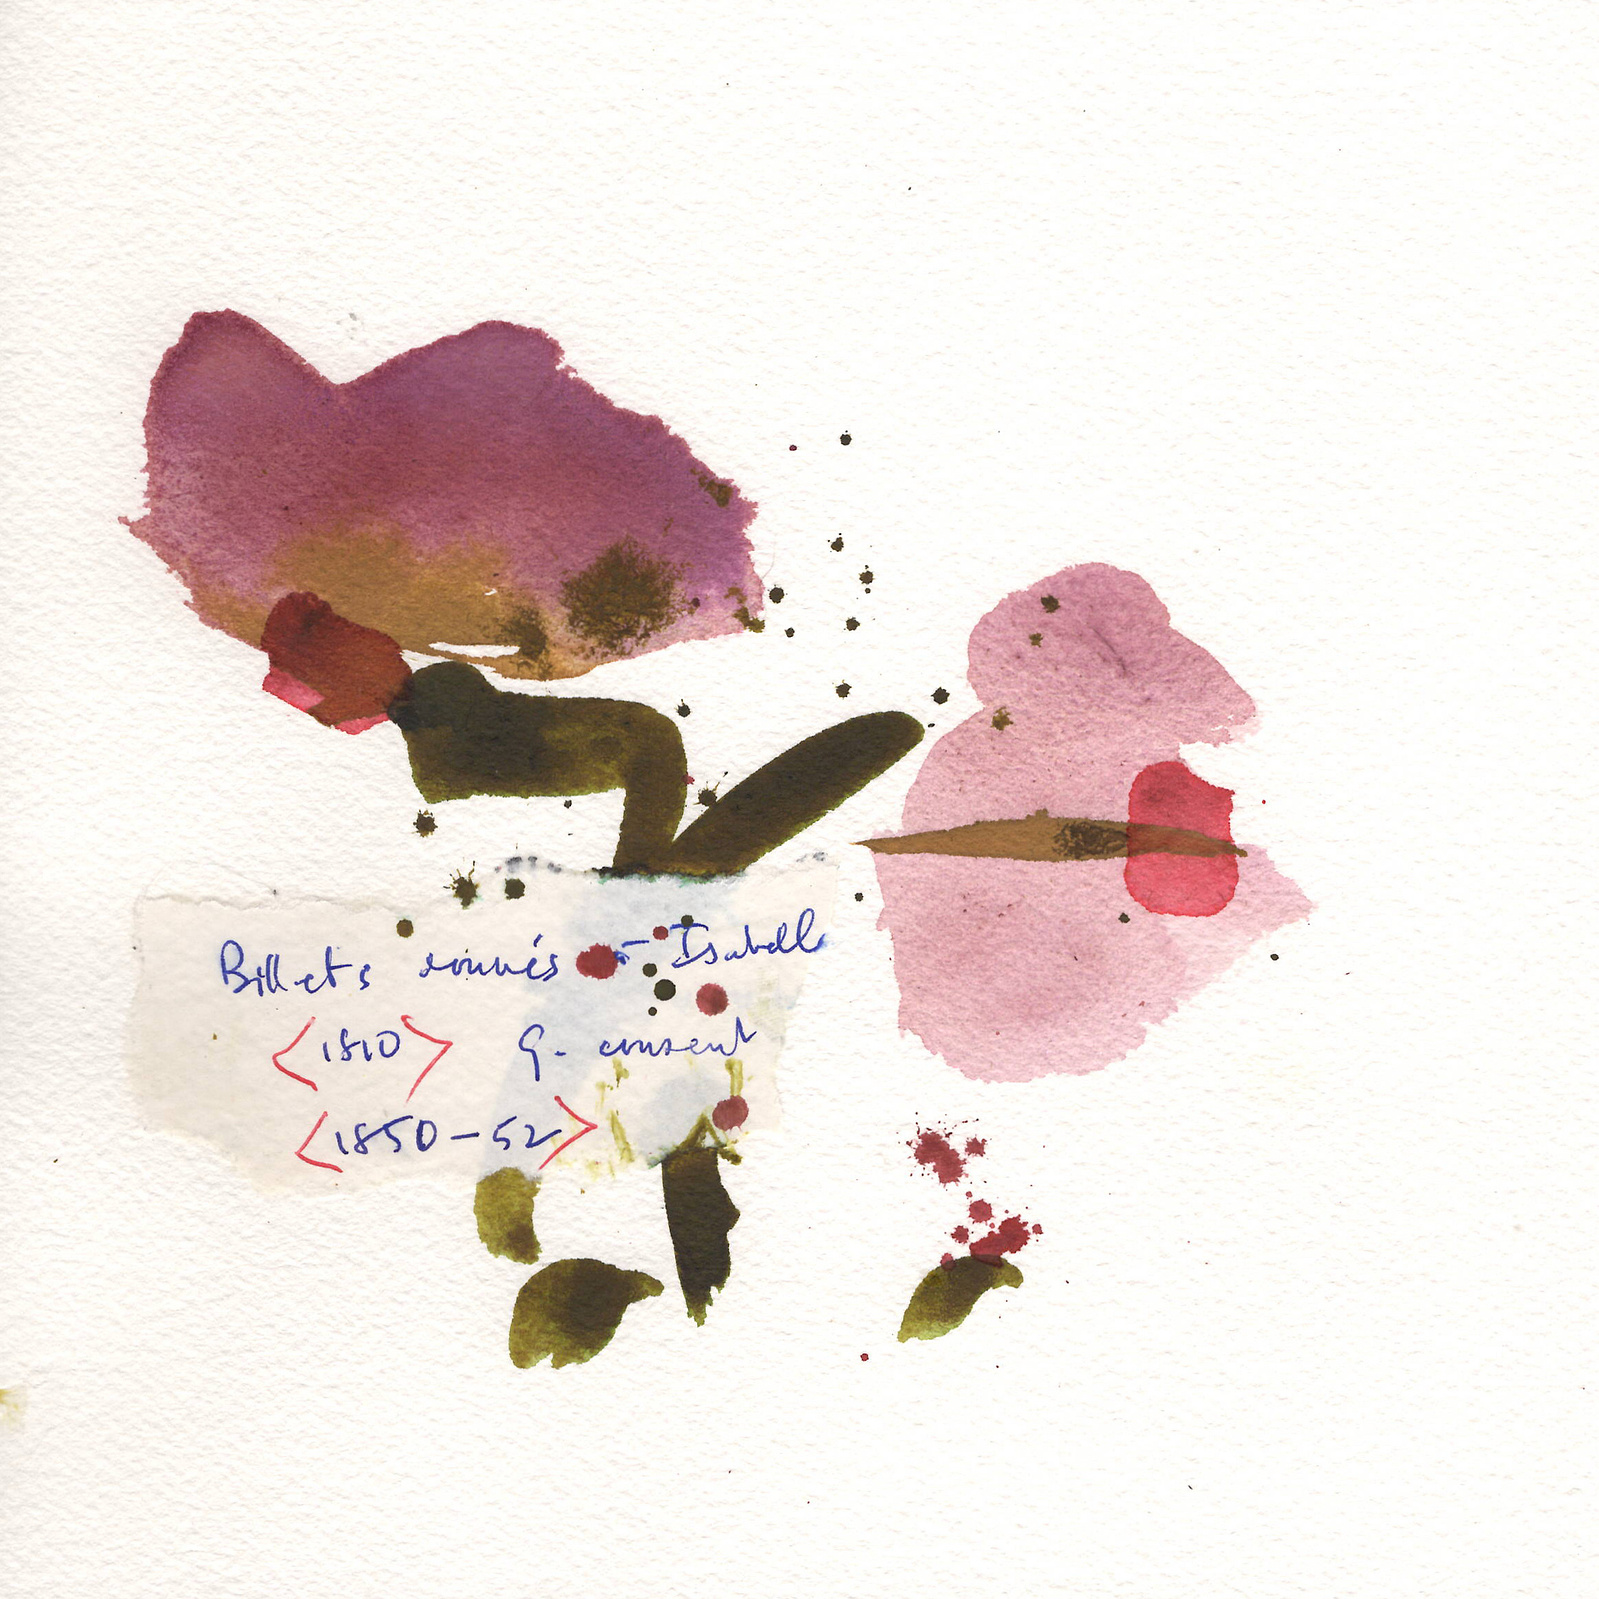 Billets donnés à Isabelle
<1810> G. consent
<1850-52>